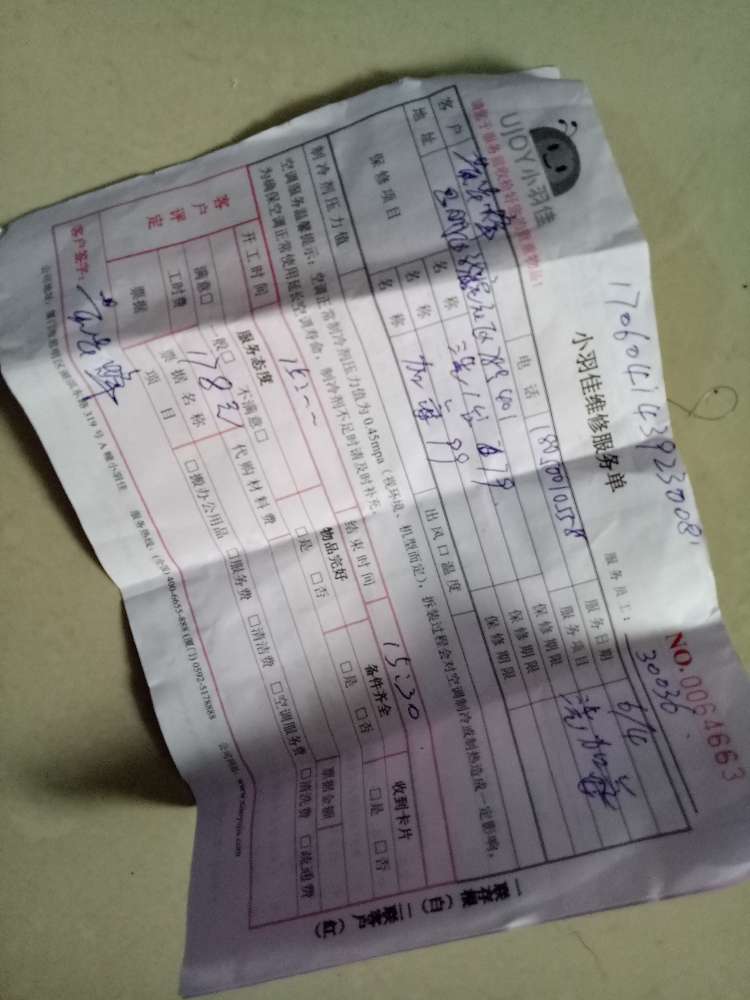 UJOY小羽佳
小羽佳维修服务单
NO.0064663
请客户服务前收检好您的贵重物品!
服务员工:30036
客户
电话
服务日期 6/4
地址
服务项目
保修项目
名称
保修期限
名称
保修期限
名称
保修期限
制冷剂压力值
出风口温度
空调服务温馨提示:空调正常制冷剂压力值为 0.45mpa(视环境、机型而定),拆装过程会对空调制冷或制热造成一定影响,
为确保空调正常使用延长空调寿命,制冷剂不足时请及时补充。
开工时间
结束时间 15:30
客户评定
服务态度
物品完好
备件齐全
收到卡片
满意□ 一般□ 不满意□
□是 □否
□是 □否
□是 □否
工时费 178元
代购材料费
票据
票据名称
票据金额
项目
□搬办公用品 □服务费 □清洁费 □空调服务费 □清洗费 □疏通费
客户签字:
公司地址:厦门市思明区湖滨东路 319 号 A 幢小羽佳 服务热线:(全国) 400-6655-888 (厦门) 0592-5178888 公司网址:www.xiaoyujia.com
一联存根(白) 二联客户(红)